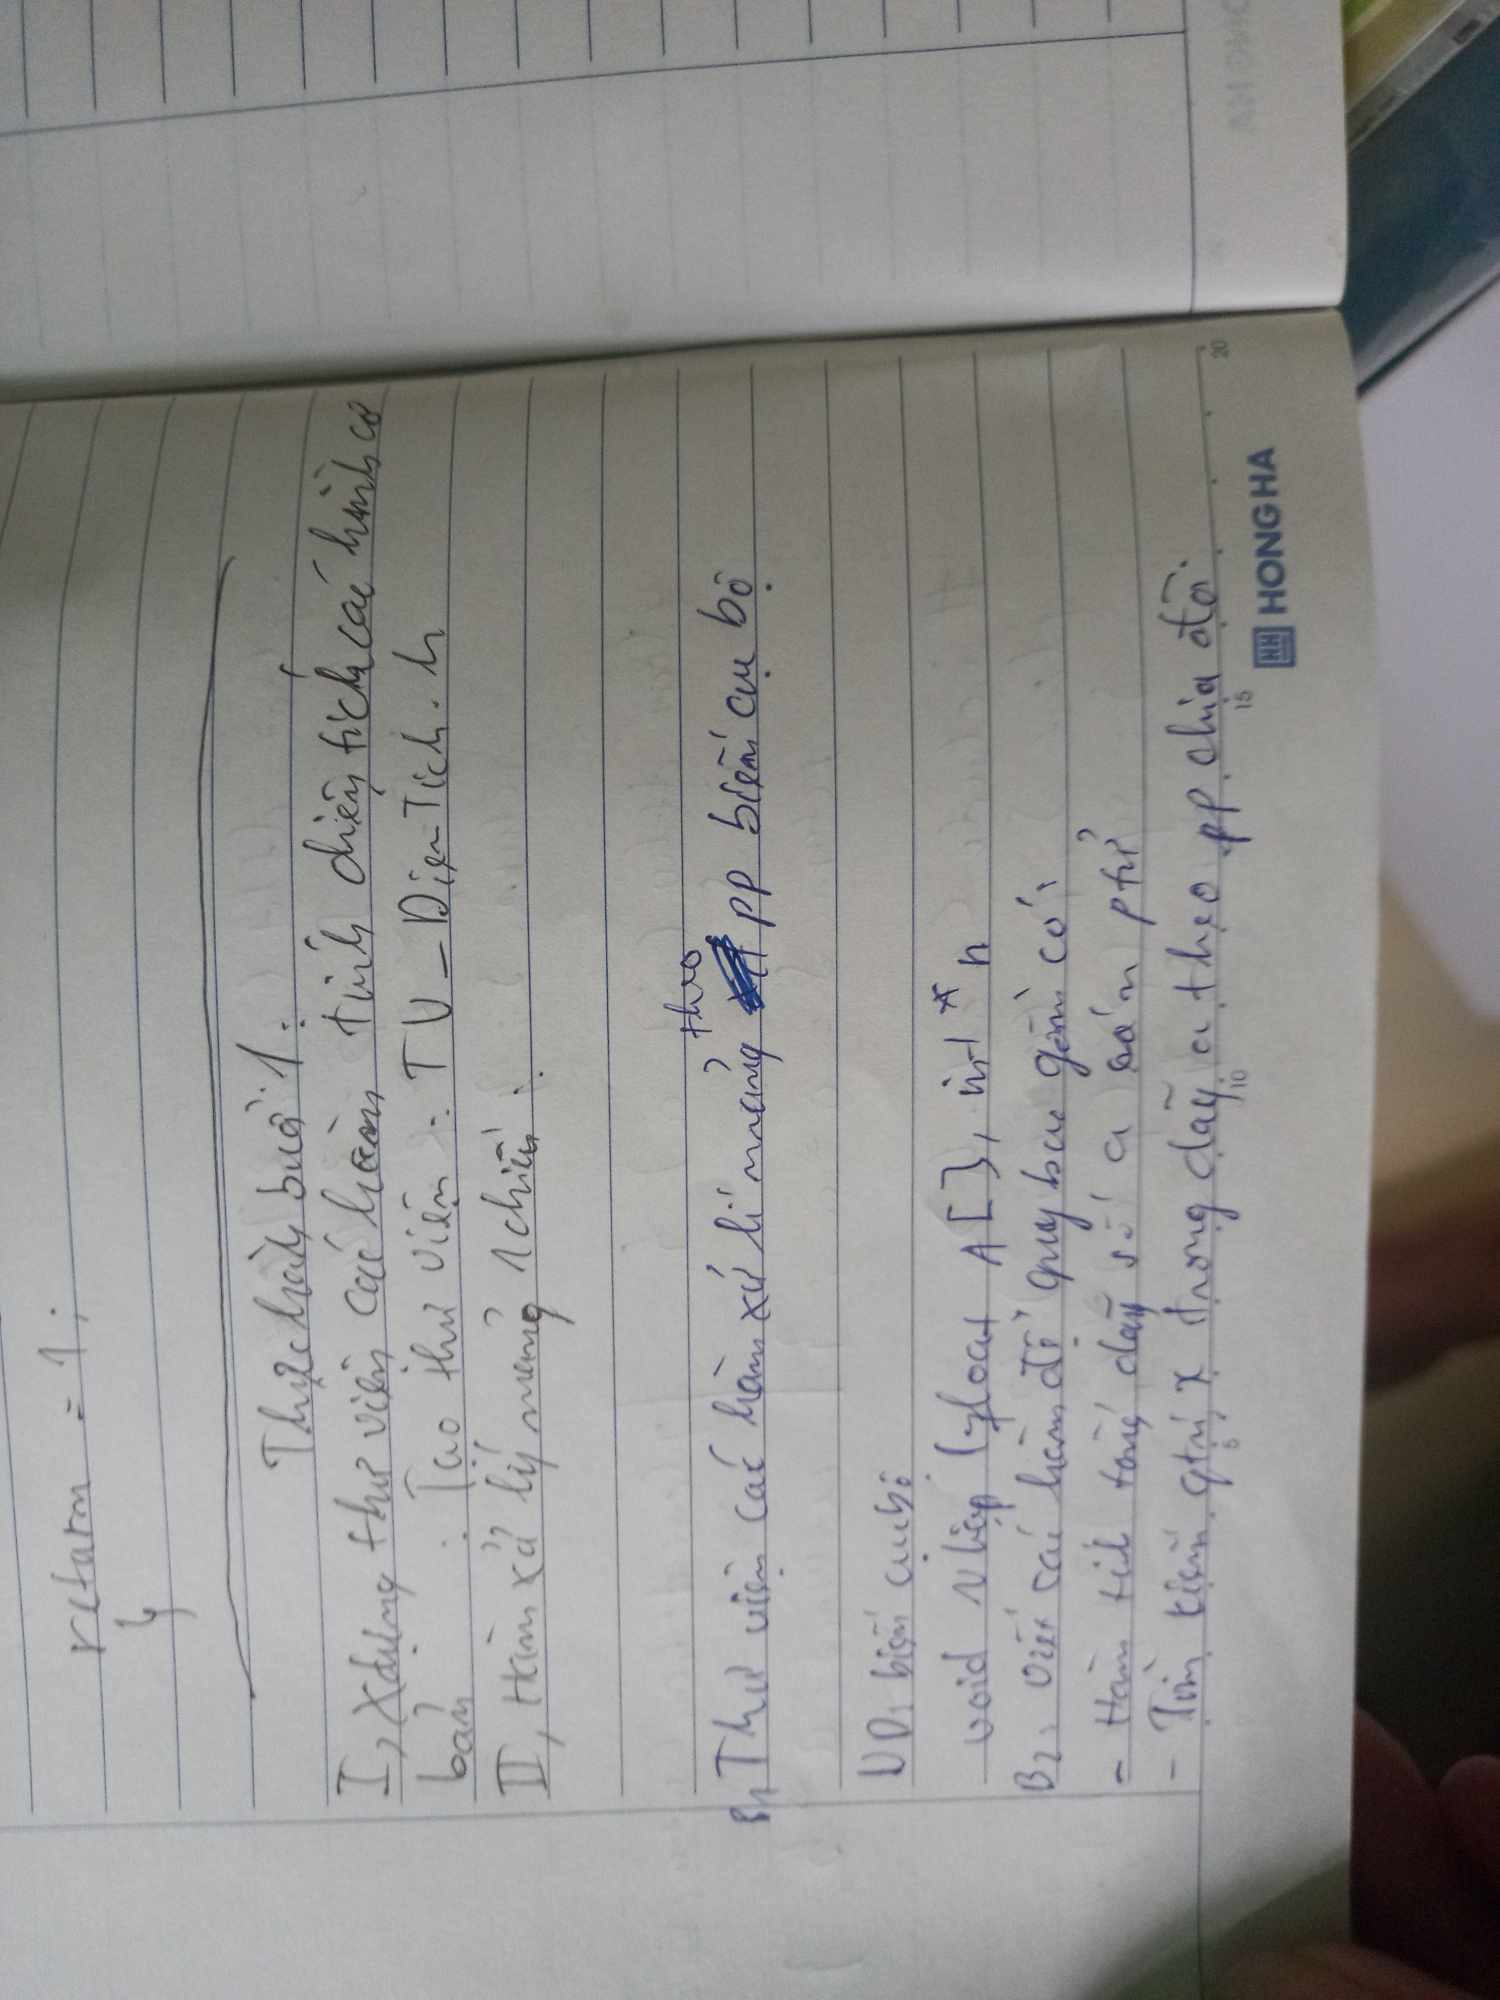 return = 1;
}
Thực hành buổi 1:
I, Xdựng thư viện các hàm tính diện tích các hình cơ
bản : Tạo thư viện : TV_DienTich.h
II, Hàm xử lý mảng 1 chiều :
theo
B1, Thư viện các hàm xử lí mảng pp biến cục bộ
VD: biến cục bộ
void Nhập (float A[], int *n
B2: Viết các hàm đệ quy bao gồm có:
- Hàm tính tổng dãy số a có n ptử
- Tìm kiếm gtrị x trong dãy a theo pp chia đôi
5 10 15 20
HH HONG HA